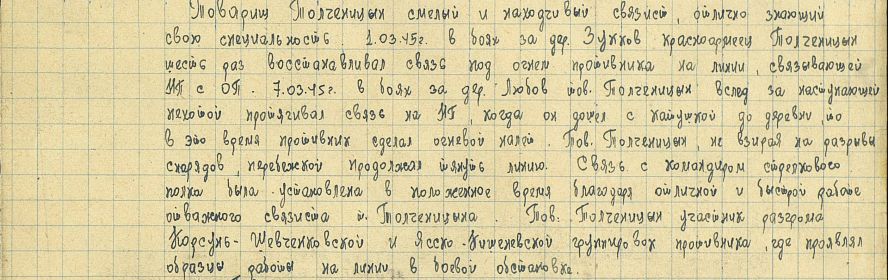 Товарищ Толченицын смелый и находчивый связист, отлично знающий
свою специальность. 1.03.45г. в боях за дер. Зуков красноармеец Толченицын
шесть раз восстанавливал связь под огнем противника на линии, связывающей
НП с ОП. 7.03.45г. в боях за дер. Любов тов. Толченицын вслед за наступающей
пехотой протягивал связь на НП, когда он дошел с катушкой до деревни, то
в это время противник сделал огневой налет. Тов. Толченицын, не взирая на разрывы
снарядов, перебежкой продолжал тянуть линию. Связь с командиром стрелкового
полка была установлена в положенное время благодаря отличной и быстрой работе
отважного связиста т. Толченицына. Тов. Толченицын участник разгрома
Корсунь-Шевченковской и Ясско-Кишеневской группировок противника, где проявлял
образцы работы на линии в боевой обстановке.